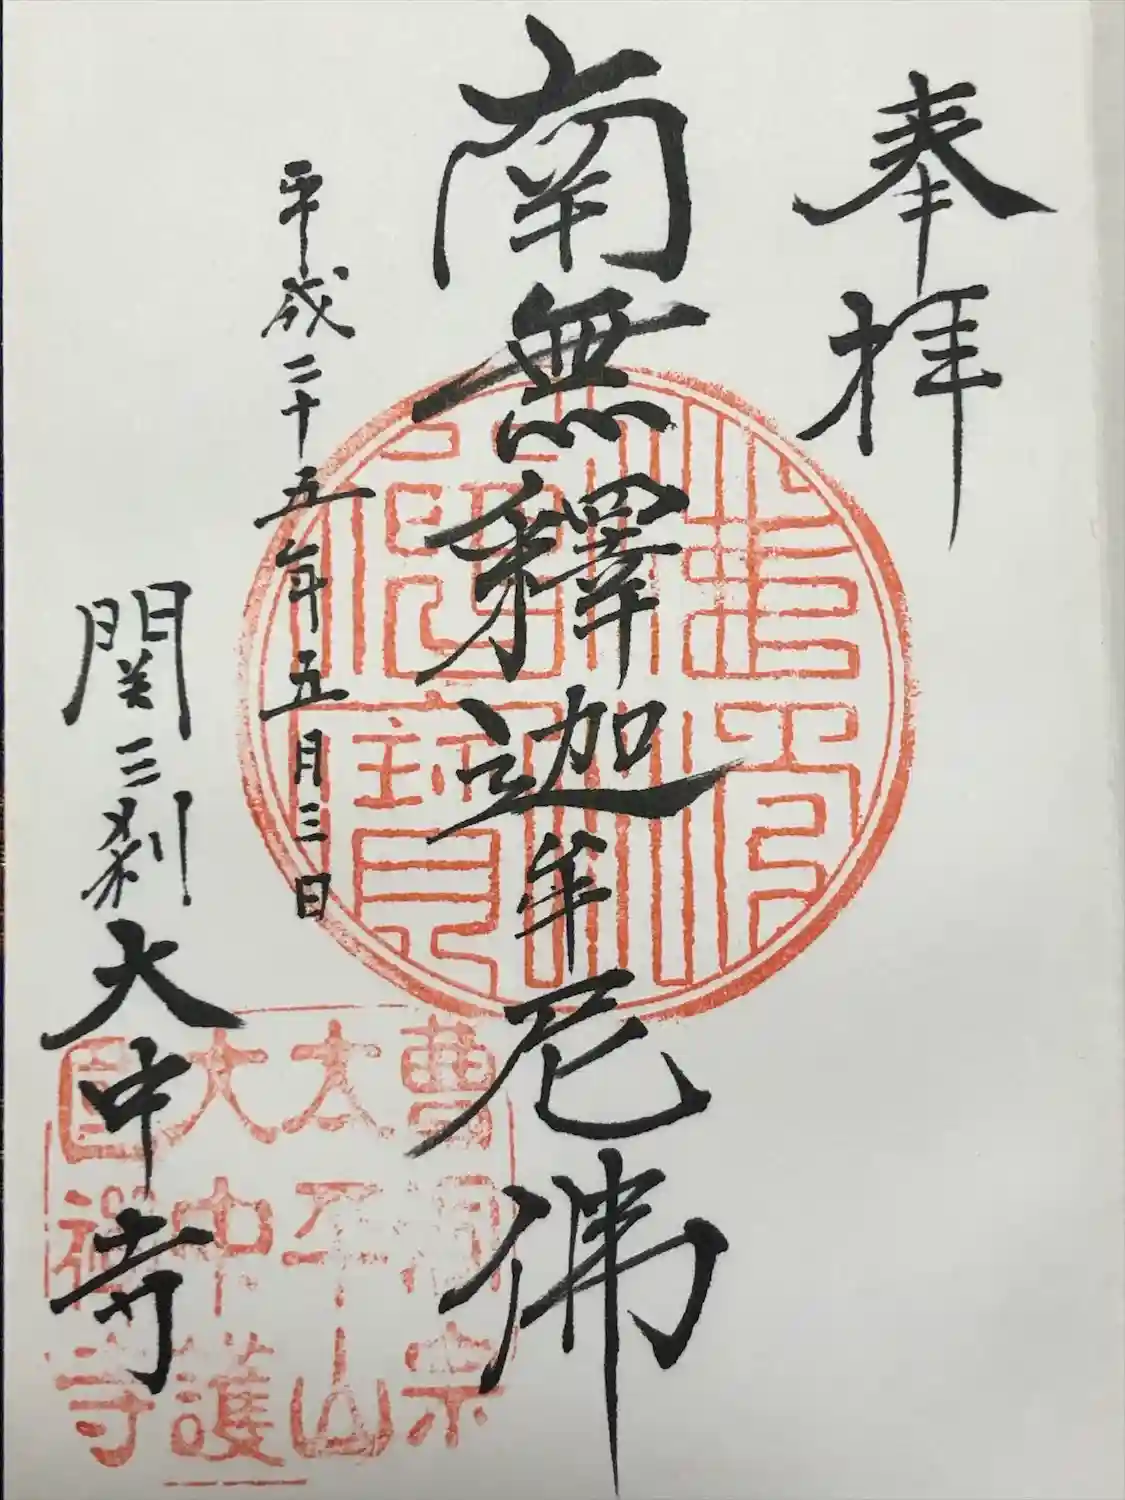 奉拝
南無釋迦牟尼佛
平成二十五年五月三日
関三刹大中寺
佛法僧寶
曹洞宗
太平山
大中護
國禅寺